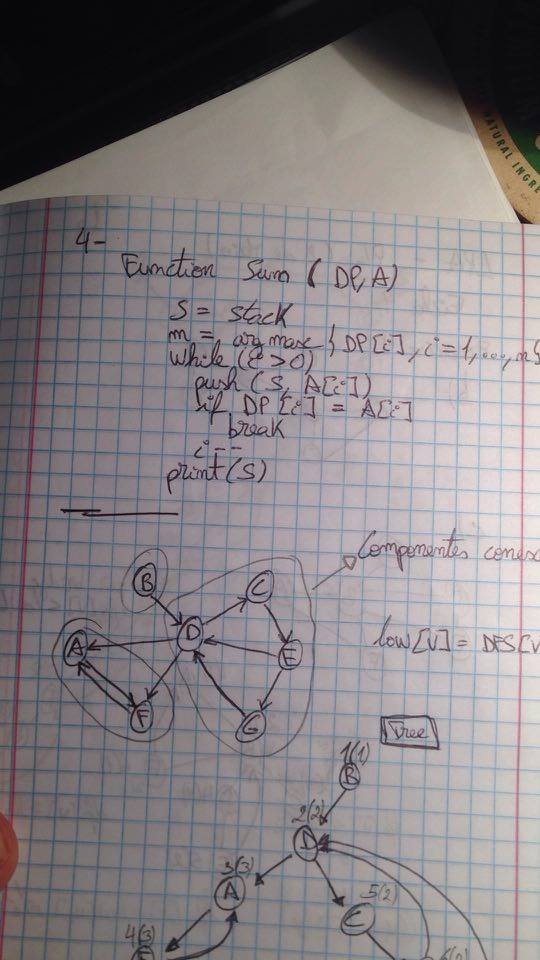 NATURAL INGRE
4-
Function Sum ( DP, A)
S = stack
m = arg max { DP[i], i=1,...,n}
while (i >0)
push (S, A[i])
if DP[i] = A[i]
break
i--
print(S)
Componentes conex
B
C
D
A
E
F
G
low[V] = DFS[V
Tree
1(1)
B
2(2)
D
3(3)
A
5(2)
C
4(3)